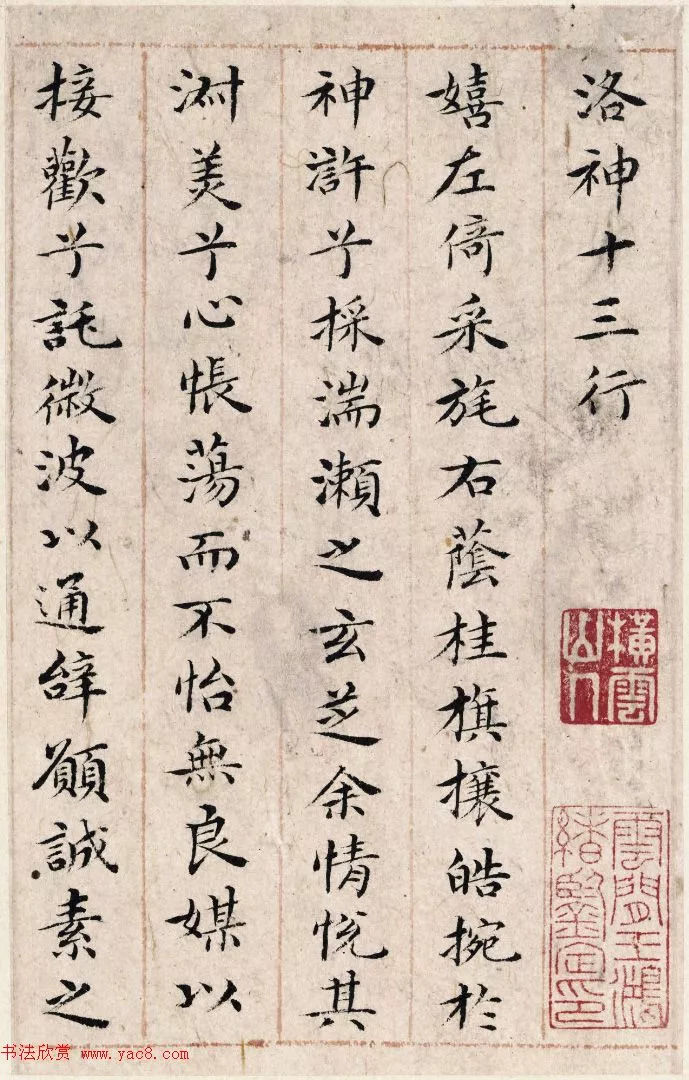 洛神十三行
嬉左倚采旄右蔭桂旗攘皓捥於
神滸兮採湍瀨之玄芝余情悅其
淑美兮心悵蕩而不怡無良媒以
接歡兮託微波以通辝願誠素之
橫雲山人
雲間王鴻緒鑒定印
书法欣赏 www.yac8.com